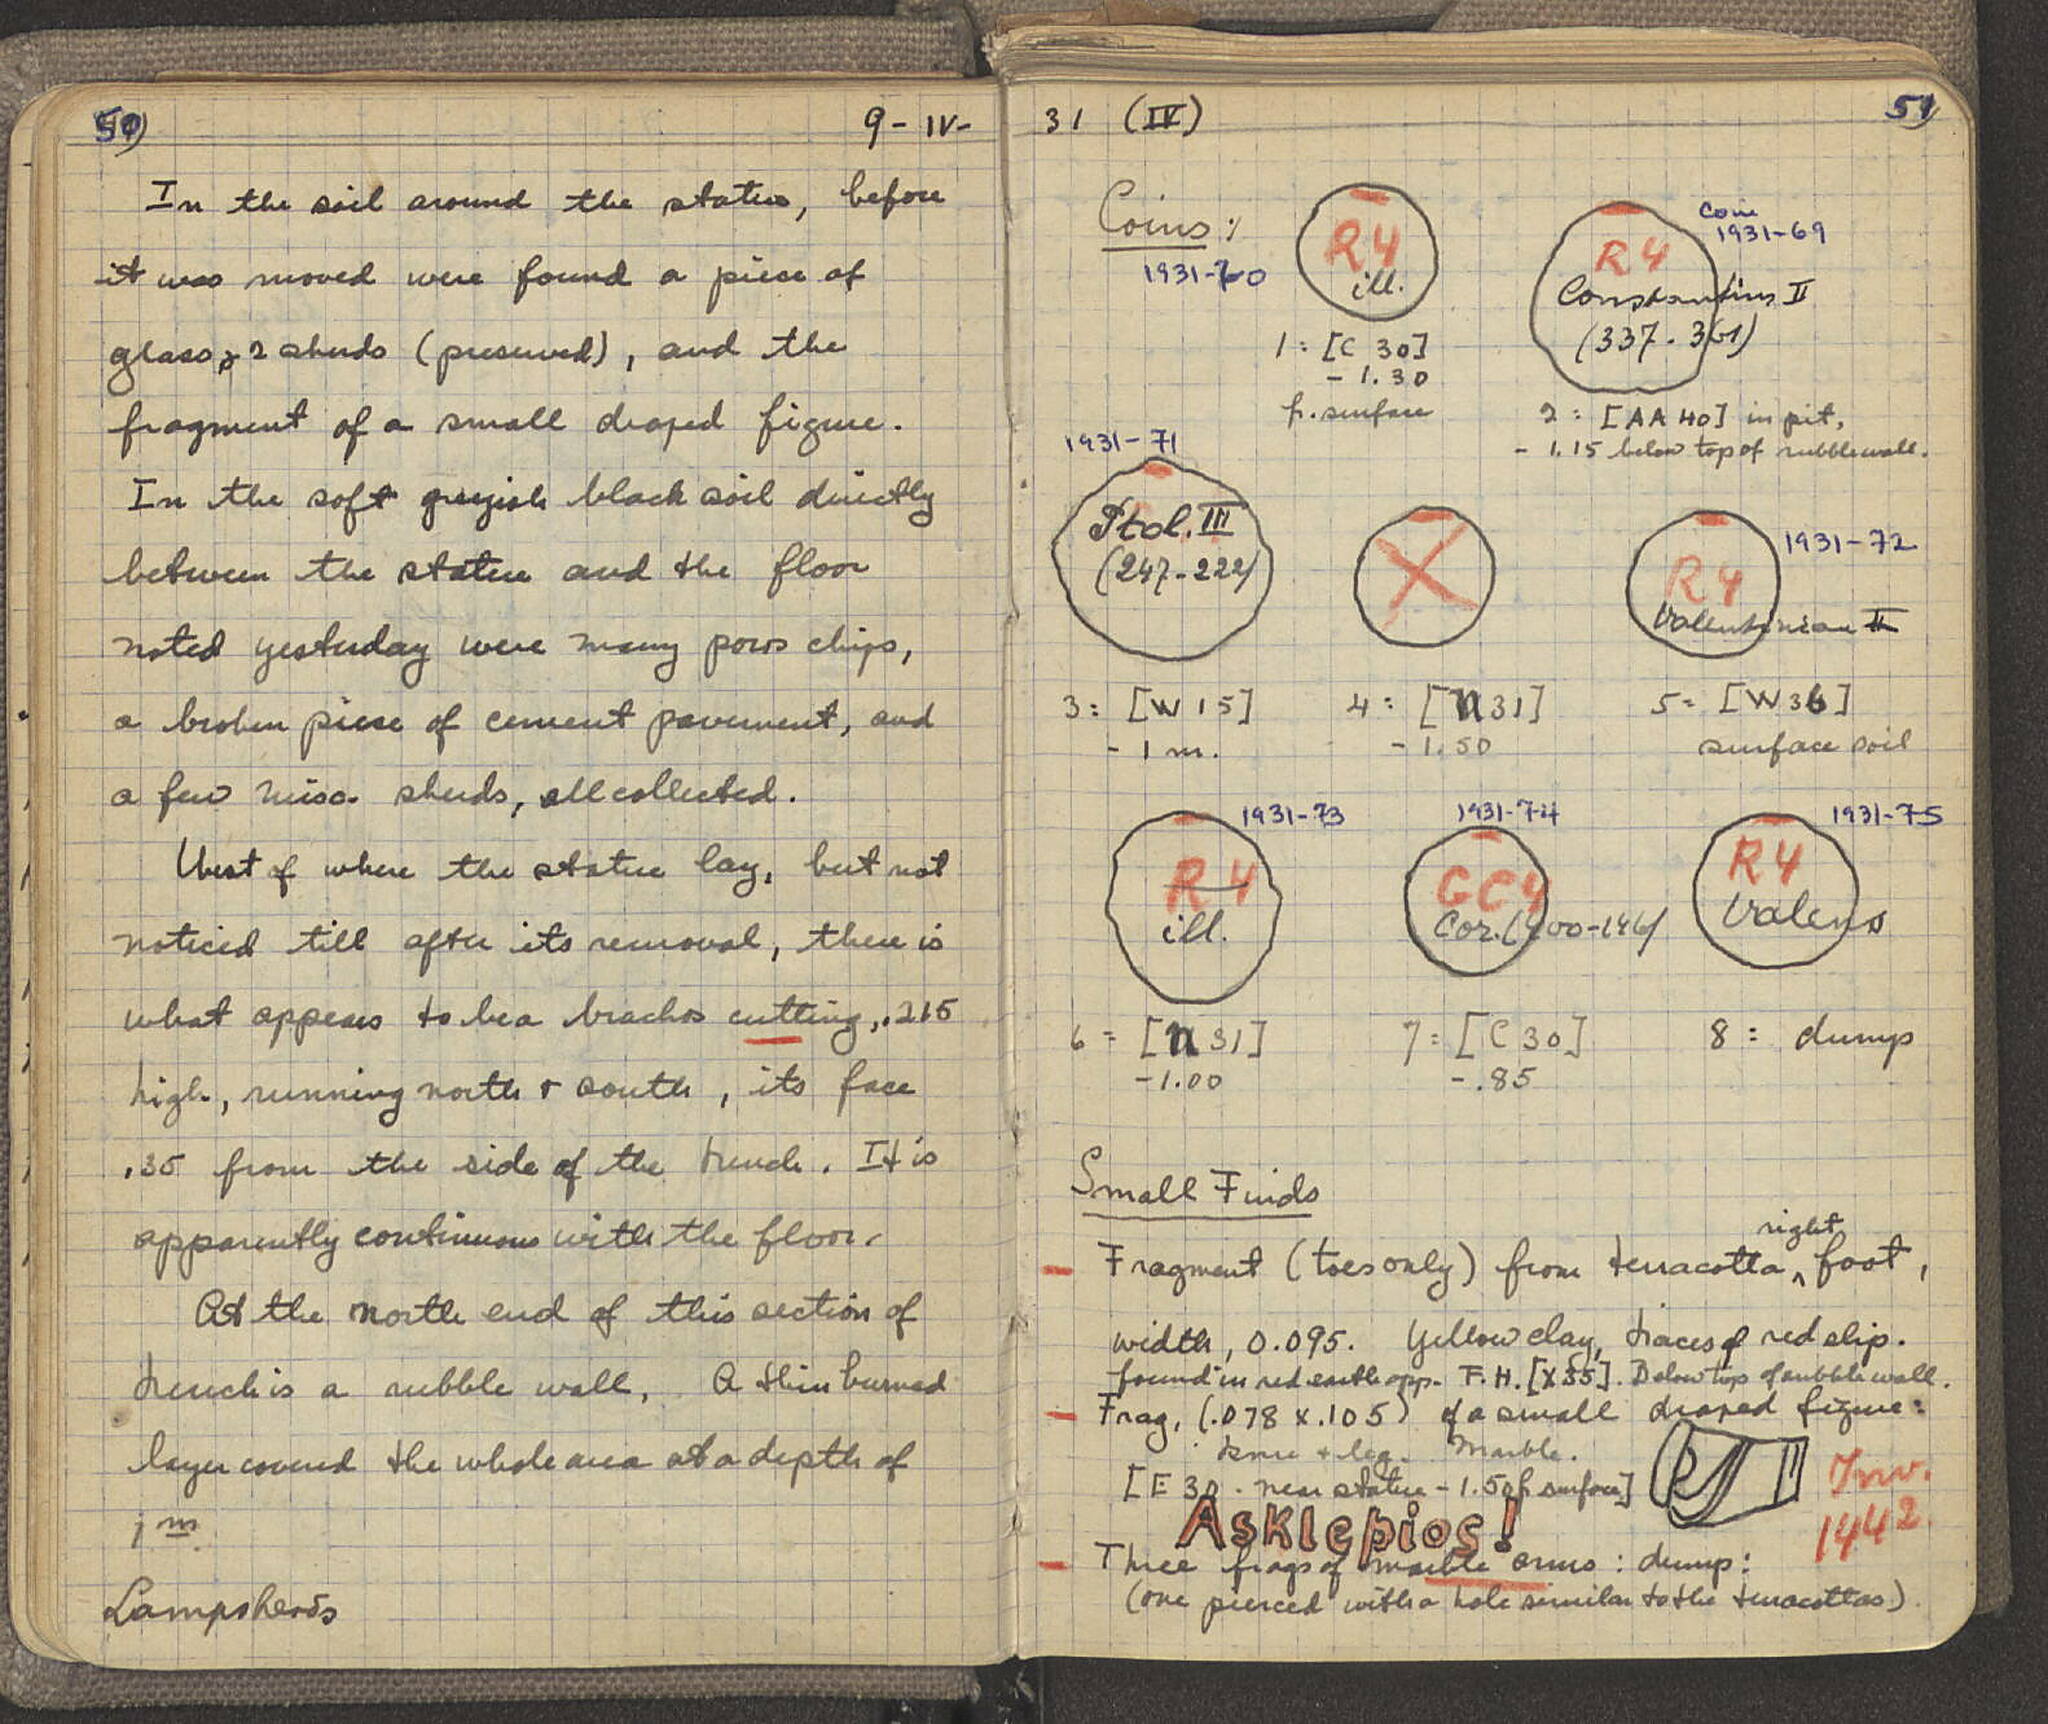 50)
9-IV-
In the soil around the statue, before
it was moved were found a piece of
glass, 2 sherds (preserved), and the
fragment of a small draped figure.
In the soft greyish black soil directly
between the statue and the floor
noted yesterday were many poros chips,
a broken piece of cement pavement, and
a few misc. sherds, all collected.
West of where the statue lay, but not
noticed till after its removal, there is
what appears to be a brachos cutting, .215
high, running north & south, its face
.35 from the side of the trench. It is
apparently continuous with the floor.
At the north end of this section of
trench is a rubble wall. A thin burned
layer covered the whole area at a depth of
1 m.
Lampsherds
31 (IV)
51)
Coins:
1931-70
R4
ill.
1: [C 30]
- 1.30
fr. surface
Coin
1931-69
R4
Constantius II
(337-361)
2: [AA 40] in pit,
- 1.15 below top of rubble wall.
1931-71
Ptol. III
(247-222)
3: [W 15]
- 1 m.
X
4: [N 31]
- 1.50
1931-72
R4
Valentinian II
5: [W 36]
surface soil
1931-73
R4
ill.
6: [N 31]
-1.00
1931-74
GC4
Cor. (400-146)
7: [C 30]
-.85
1931-75
R4
Valens
8: dump
Small Finds
right
- Fragment (toes only) from terracotta ‸ foot,
width, 0.095. Yellow clay, traces of red slip.
found in red earth opp. F.H. [X 35]. Below top of rubble wall.
- Frag, (.078 x .105) of a small draped figure:
knee + leg. Marble.
[E 30 - near statue - 1.50 fr surface]
Inv.
1442.
Asklepios!
- Three frags of marble arms: dump:
(one pierced with a hole similar to the terracottas).